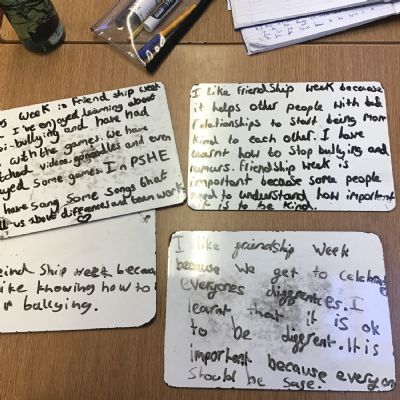 week is friend ship week
I've enjoyed learning about
-bullying and have had
with the games. We have
videos, gonoodles and even
some games. In PSHE
have sang some songs that
us about differences and team work
I like friendship week because
it helps other people with bad
relationships to start being more
kind to each other. I have
learnt how to stop bullying and
rumours. Friendship week is
important because some people
need to understand how important
it is to be kind.
Ship week because
like knowing how to
bullying.
I like friendship week
because we get to celebrate
everyones differences. I
learnt that it is ok
to be different. It is
important because everyone
should be safe.